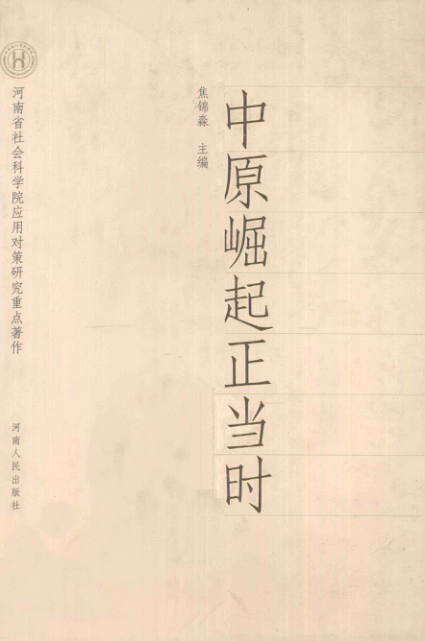 中原崛起正当时
焦锦淼 主编
河南省社会科学院应用对策研究重点著作
河南人民出版社